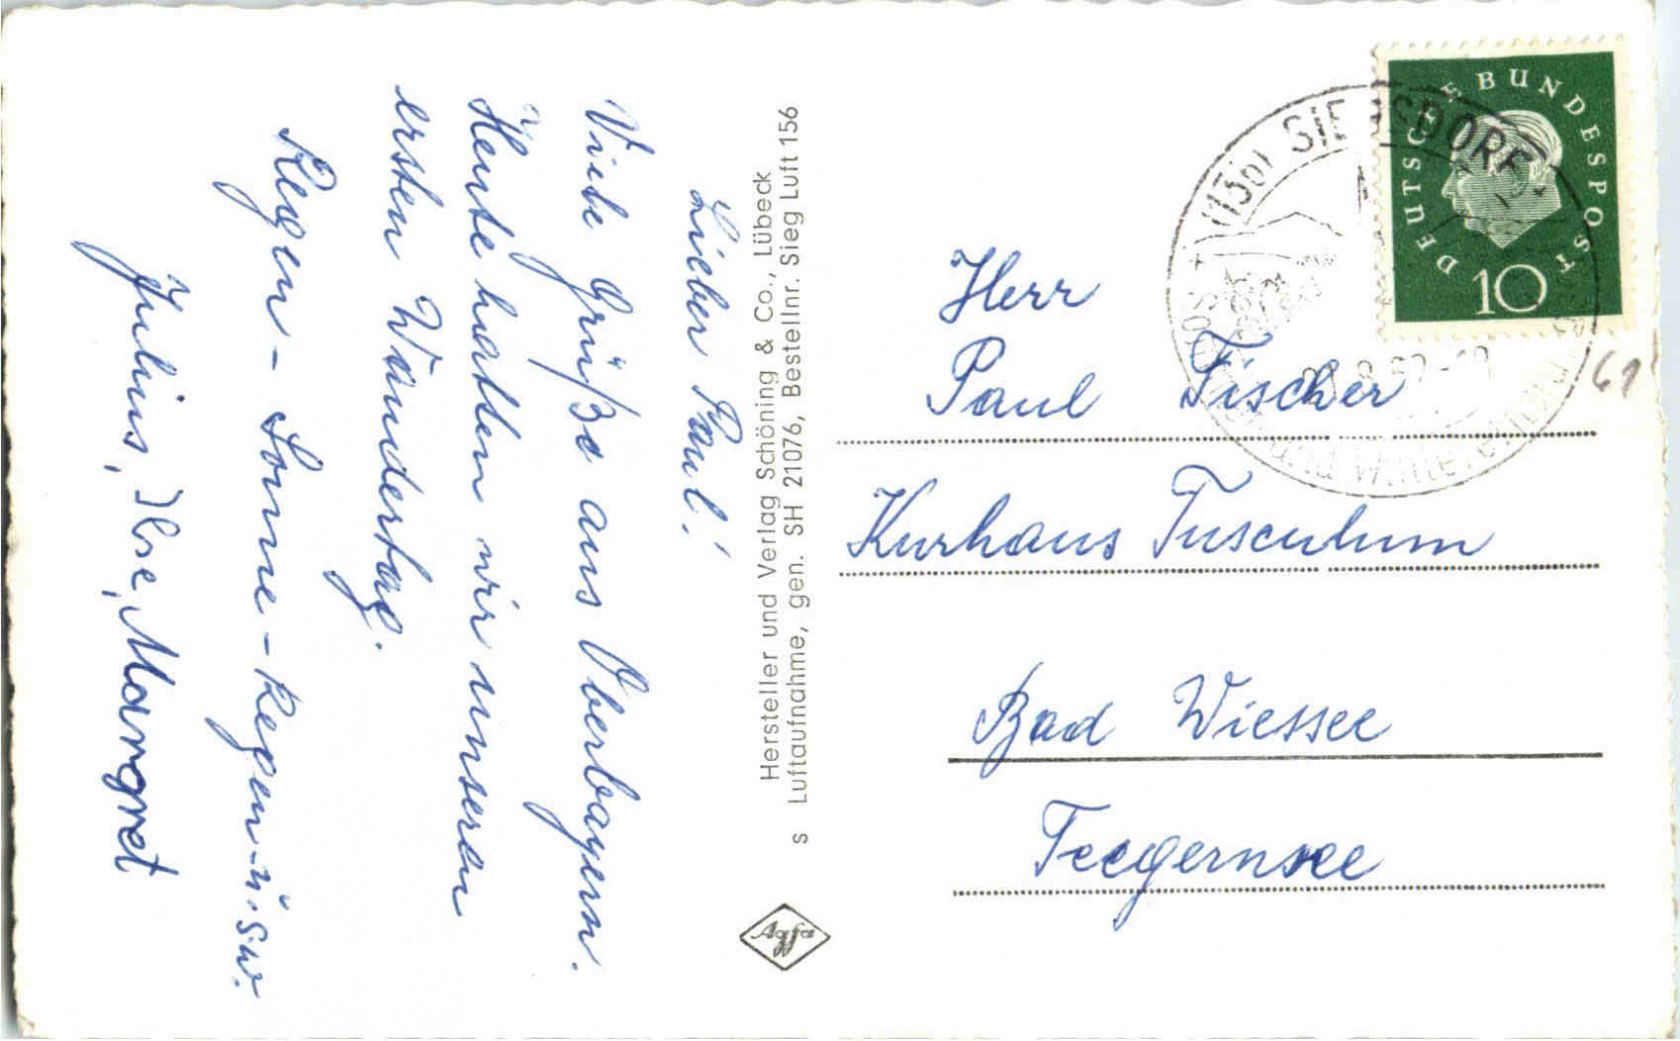 Lieber Paul!
Viele Grüße aus Oberbayern.
Heute hatten wir unseren
ersten Wandertag.
Regen - Sonne - Regen u.s.w.
Julius, Ilse, Margret
Hersteller und Verlag Schöning & Co., Lübeck
s Luftaufnahme, gen. SH 21076, Bestellnr. Sieg Luft 156
Agfa
DEUTSCHE BUNDESPOST
10
(13b) SIEGSDORF
Herr
Paul Fischer
61
Kurhaus Tusculum
Bad Wiessee
Teegernsee